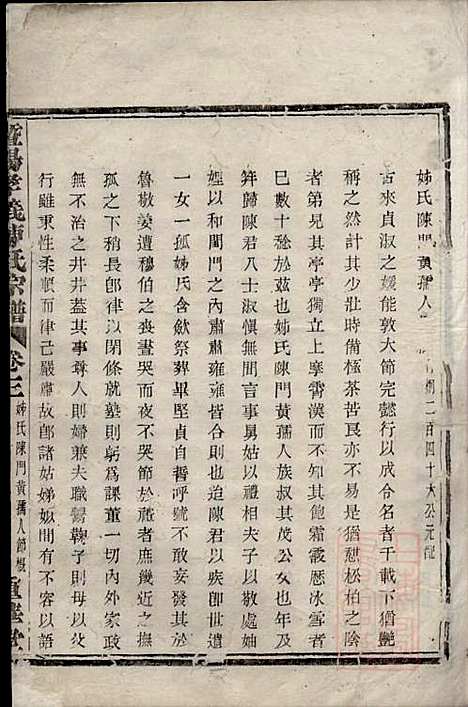 姊氏陳門黃孺人
古來貞淑之媛能敦大節完懿行以成令名者千載下猶艷
稱之然計其少壯時備極荼苦艮亦不易是猶愁松柏之陰
者第見其亭亭獨立上摩霄漢而不知其飽霜霰歷冰雪者
巳數十餘於茲也姊氏陳門黃孺人族叔其茂公女也年及
笄歸陳君八士淑愼無間言事舅姑以禮相夫子以敬處妯
娌以和閨門之內肅肅雍雍皆如也迨陳君以疾卽世遺
一女一孤姊氏含歛祭葬堅貞自誓呼號不敢妄發其於
魯敬姜遭穆伯之喪晝哭而夜不哭節於禮者庶幾近之撫
孤之下稍長卽律以閑條就塾則躬爲課董一切內外家政
無不治之井井蓋其事尊人則婦兼夫職鬻鞠子則母以父
行雖秉性柔順而律己嚴肅故卽諸姑姊姒間有不容以語
暨陽孝義陳氏宗譜
卷三
姊氏陳門黃孺人節槪